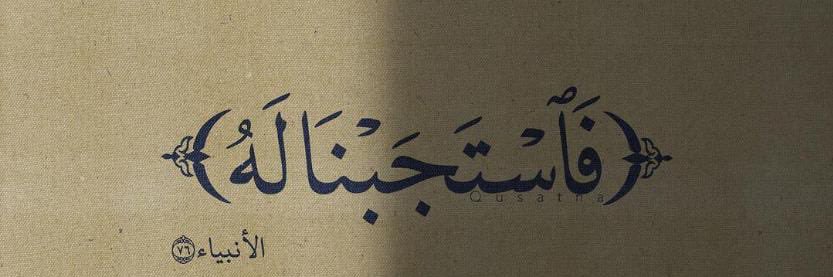 ﴿فَٱسْتَجَبْنَا لَهُ﴾
Qusatha
الأنبياء ٧٦